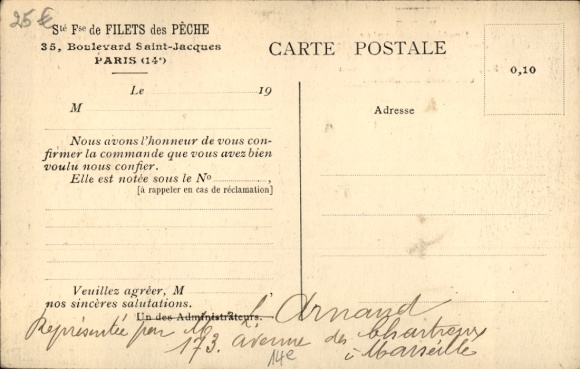 25 €
Sté Fse de FILETS des PÈCHE
35, Boulevard Saint-Jacques
PARIS (14e)
CARTE POSTALE
0,10
Le 19
M
Adresse
Nous avons l'honneur de vous con-
firmer la commande que vous avez bien
voulu nous confier.
Elle est notée sous le No ,
[à rappeler en cas de réclamation]
Veuillez agréer, M ,
nos sincères salutations.
Un des Administrateurs.
Représentée par Mr Arnaud
173. avenue des Chartreux
à Marseille
14e